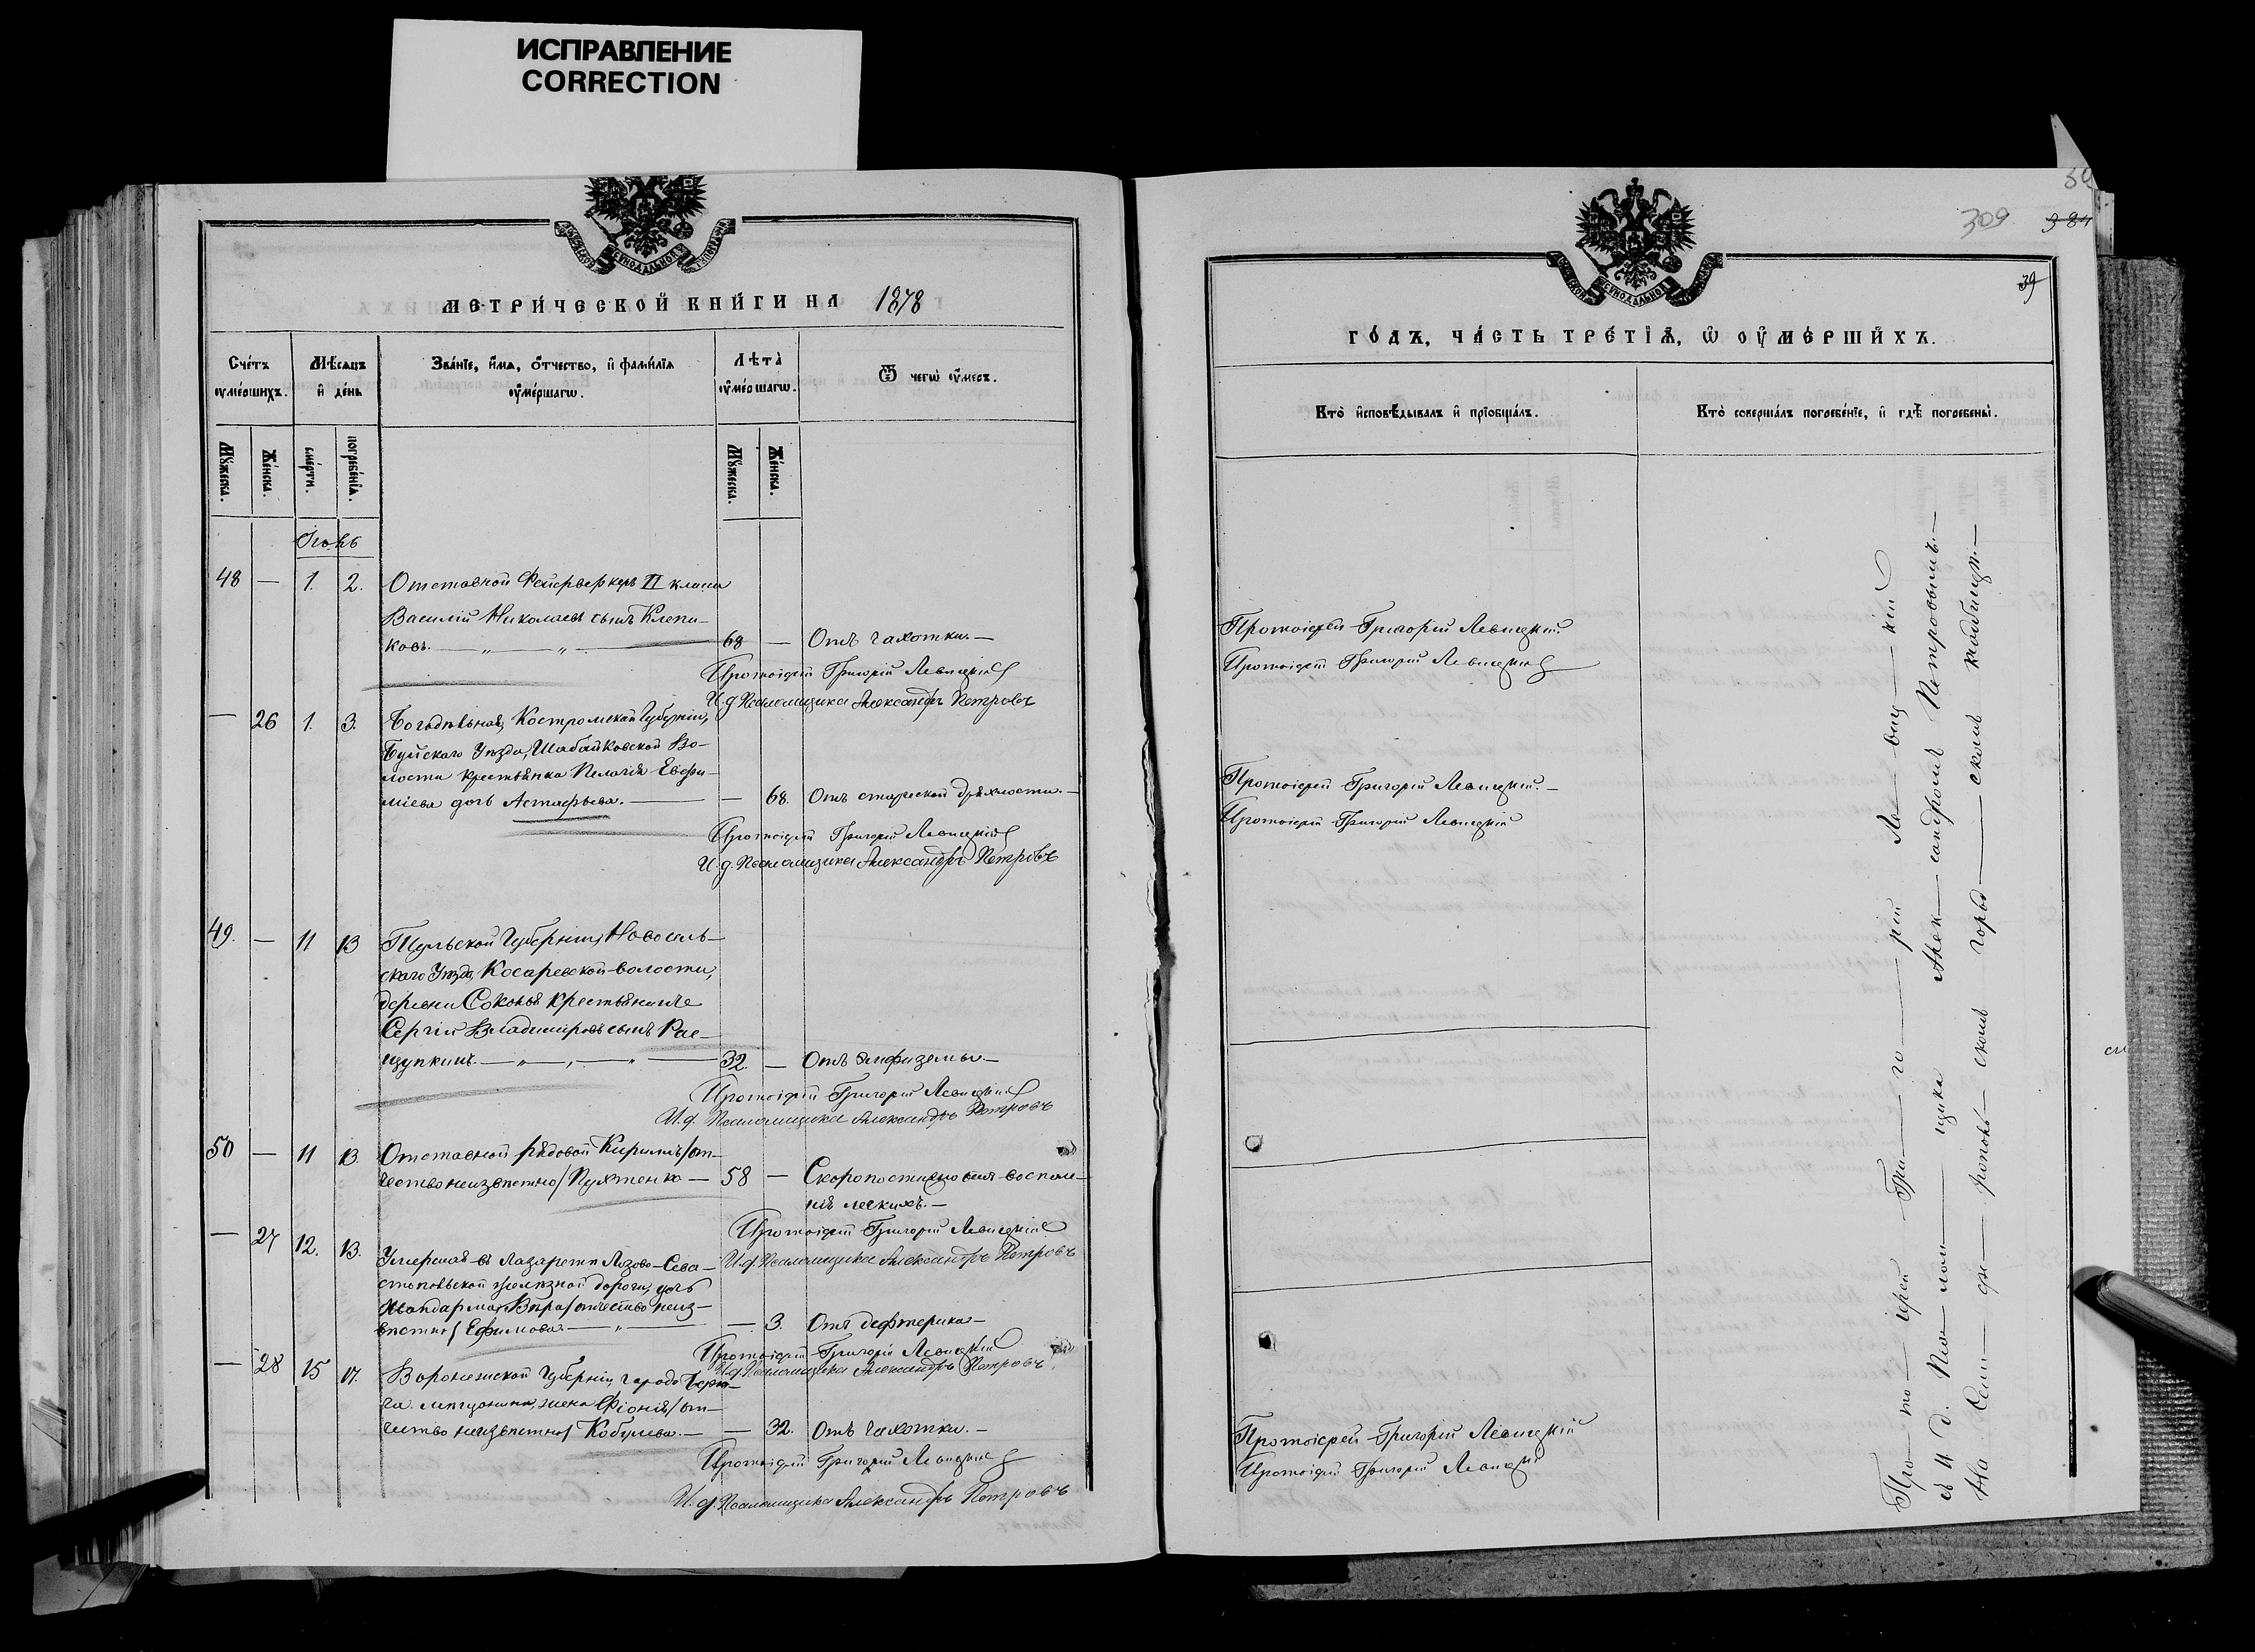 ИСПРАВЛЕНИЕ
CORRECTION
МЕТРИ́ЧЕСКОЙ КНИ́ГИ НА 1878
Сче́тъ ᲂуме́ршихъ.
Мѣ́сяцъ и де́нь
Зва́нїе, и́мя, о́тчество, и фами́лїя ᲂуме́ршагѡ.
Лѣта̀ ᲂуме́ршагѡ.
Ѿ чегѡ̀ ᲂу́меръ.
Мꙋ́жеска.
Же́нска.
сме́рти.
погребе́нїя.
Мꙋ́жеска.
Же́нска.
Іюнь
48 — 1. 2. Отставной Фейерверкеръ II класса
Василій Николаевъ сынъ Клепи-
ковъ. — „ — „ — 68 — Отъ чахотки. —
Протоіерей Григорій Левицкій
И. д. Псаломщика Александръ Петровъ
— 26 1. 3. Богадѣльная, Костромской Губерніи,
Буйскаго Уѣзда, Шабайковской Во-
лости крестьянка Пелагія Евфи-
міева дочь Астафьева. — — 68. Отъ старческой дряхлости. —
Протоіерей Григорій Левицкій
И. д. Псаломщика Александръ Петровъ
49. — 11 13 Тульской Губерніи, Новосиль-
скаго Уѣзда, Косаревской волости,
деревни Соковья крестьянинъ
Сергій Владиміровъ сынъ Рас-
щупкинъ. — „ — „ — „ — 32. — Отъ эмфиземы. —
Протоіерей Григорій Левицкій
И. д. Псаломщика Александръ Петровъ
50 — 11 13. Отставной рядовой Кириллъ /от-
чество неизвѣстно/ Пухтенко — 58 — Скоропостижно отъ воспале-
нія легкихъ. —
Протоіерей Григорій Левицкій
И. д. Псаломщика Александръ Петровъ
— 27 12. 13. Умершая въ лазаретѣ Лозово-Сева-
стопольской желѣзной дороги, дочь
жандарма Вѣра /отчество неиз-
вѣстно/ Ефимова. — „ — — 3. Отъ дифтерика —
Протоіерей Григорій Левицкій
И. д. Псаломщика Александръ Петровъ
— 28 15 17. Воронежской Губерніи, города
мѣщанина, жена Фіонія /от-
чество неизвѣстно/ Кобулева. — — 32. Отъ чахотки. —
Протоіерей Григорій Левицкій
И. д. Псаломщика Александръ Петровъ
309 384
39
ГО́ДЪ, ЧА́СТЬ ТРЕ́ТЇЯ, Ѡ ОУМЕ́РШИХЪ.
Кто̀ и҆сповѣ́дывалъ и҆ прїѡбща́лъ.
Кто̀ соверша́лъ погребе́нїе, и҆ гдѣ̀ погребены̀.
Протоіерей Григорій Левицкій
Протоіерей Григорій Левицкій
Протоіерей Григорій Левицкій. —
Протоіерей Григорій Левицкій
Протоіерей Григорій Левицкій
Протоіерей Григорій Левицкій
Про — то — іерей Гри — го — рій Ле — виц — кій
съ И. Д. Пса — лом — щика Алек — сандромъ Петровымъ. —
На Сим — фе — рополь — скомъ город — скомъ кладбищѣ. —